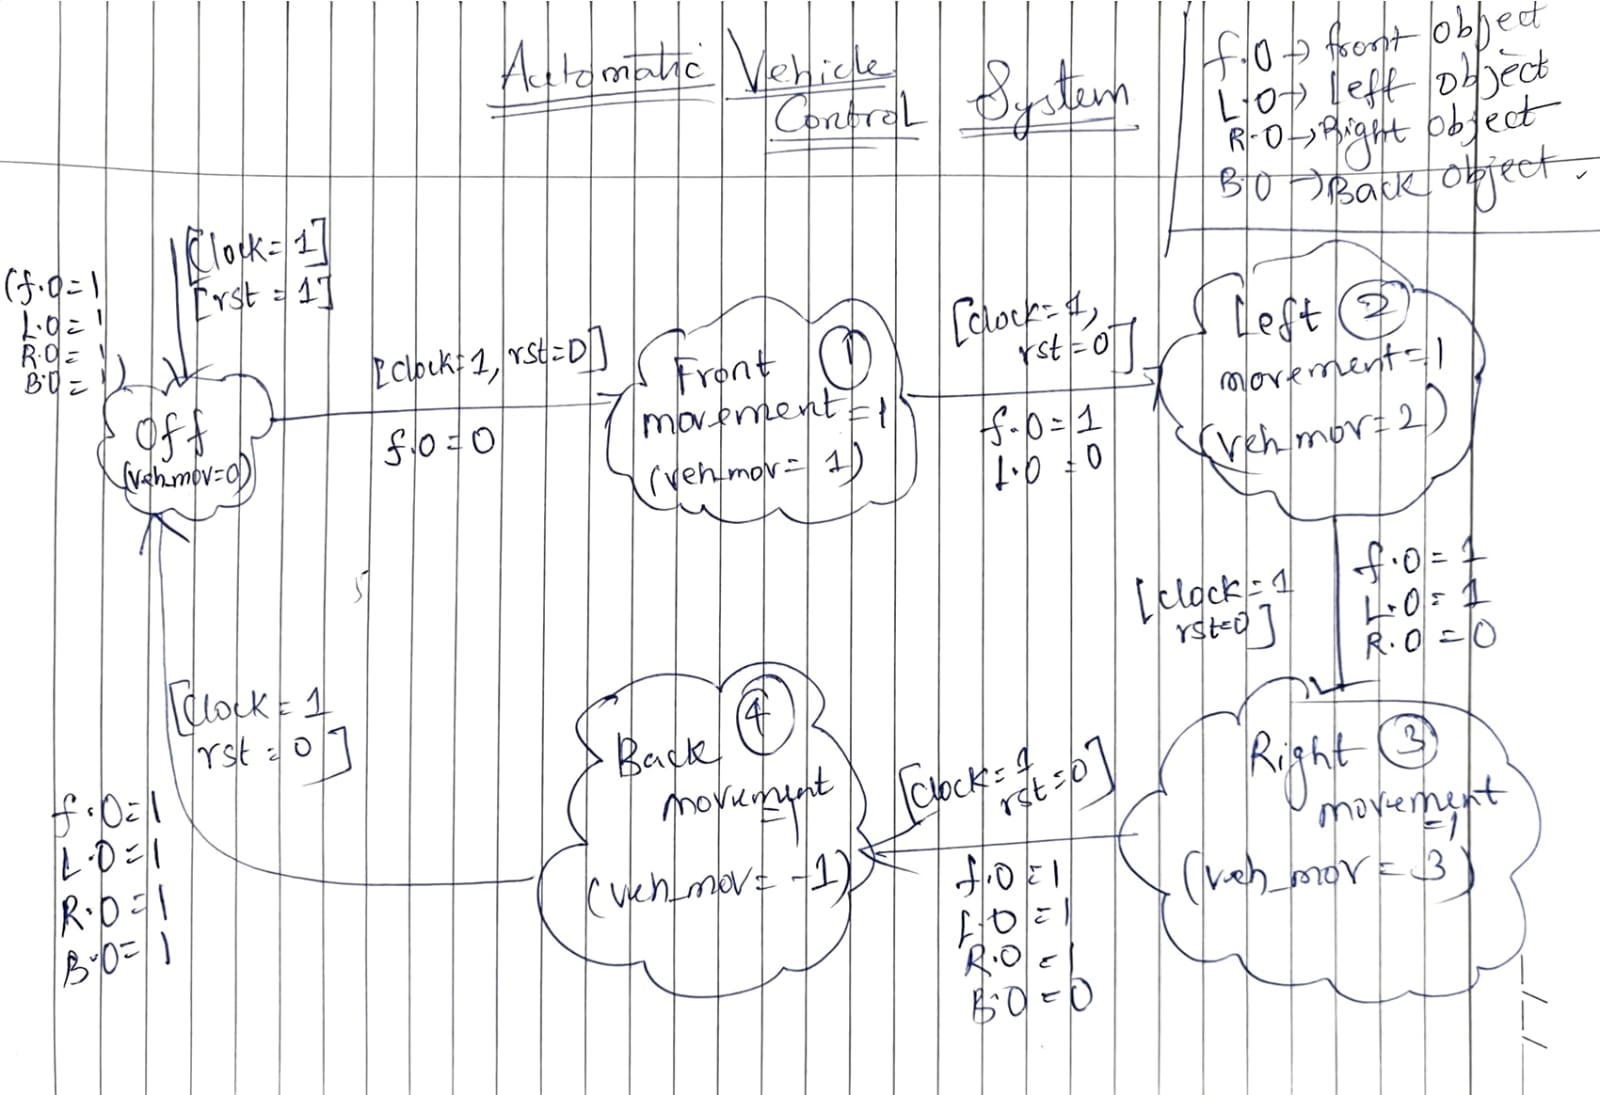 Automatic Vehicle
Control System
f.O → front object
L.O → left object
R.O → Right object
B.O → Back object.
[Clock = 1]
[rst = 1]
(f.O = 1
L.O = 1
R.O = 1
B.O = 1)
Off
(veh_mov=0)
[clock = 1, rst=0]
f.O = 0
Front 1
movement = 1
(veh_mov = 1)
[clock = 1,
rst = 0]
f.O = 1
L.O = 0
Left 2
movement = 1
(veh_mov = 2)
[clock = 1
rst=0]
f.O = 1
L.O = 1
R.O = 0
Right 3
movement
= 1
(veh_mov = 3)
[Clock = 1
rst = 0]
f.O = 1
L.O = 1
R.O = 1
B.O = 0
Back 4
movement
= 1
(veh_mov = -1)
[Clock = 1
rst = 0]
f.O = 1
L.O = 1
R.O = 1
B.O = 1